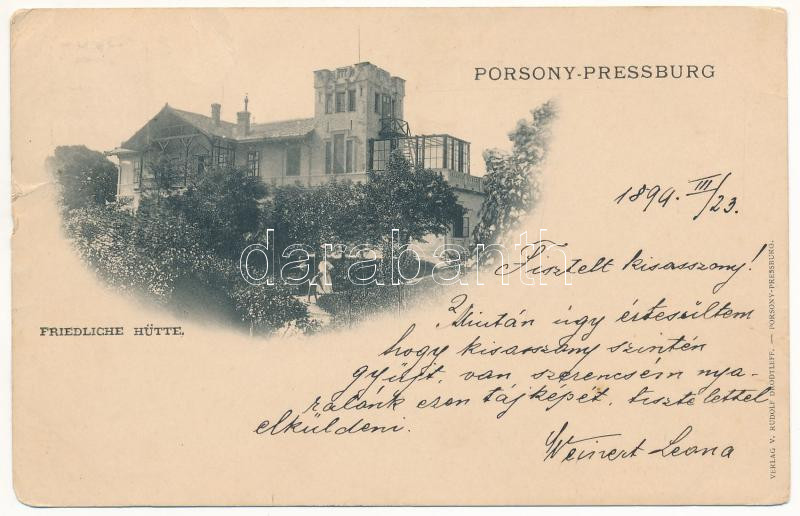 PORSONY-PRESSBURG
1899. III/23.
Tisztelt kisasszony!
Miután úgy értesültem
hogy kisasszony szintén
gyűjt, van szerencsém nya-
ralónk ezen tájképét, tisztelettel
elküldeni.
Weinert Leona
FRIEDLICHE HÜTTE.
VERLAG V. RUDOLF DRODTLEFF. — PORSONY-PRESSBURG.
darabanth